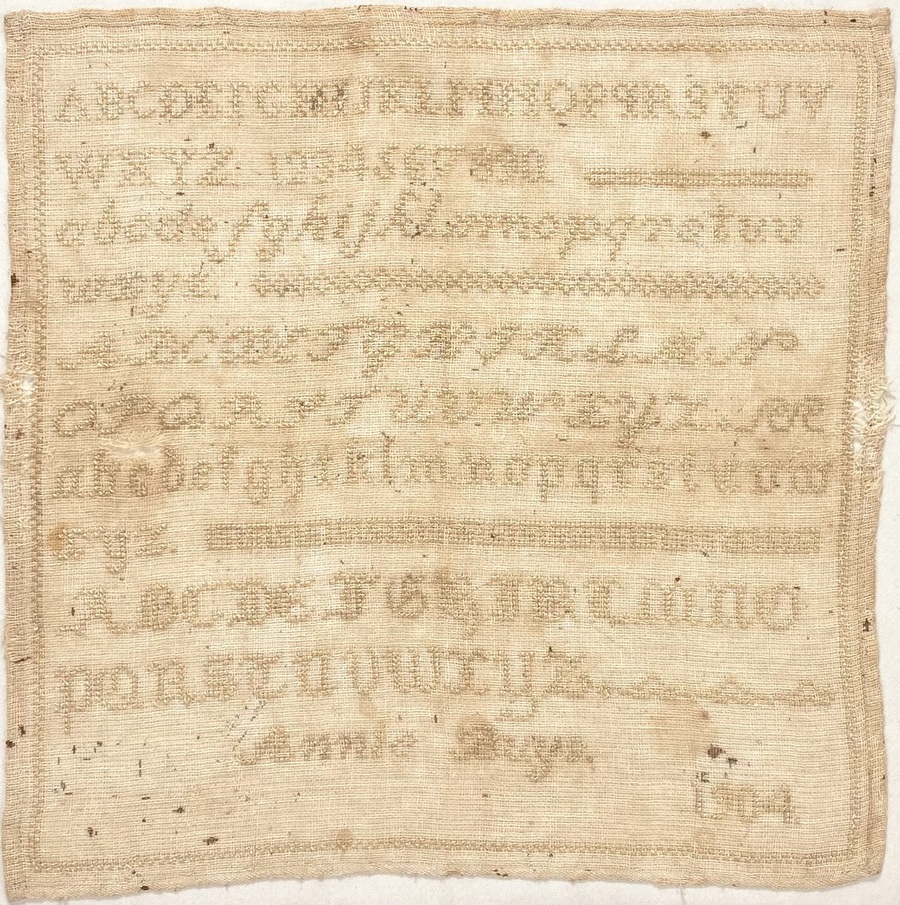 ABCDEFGHIJKLMNOPQRSTUV
WXYZ 1234567890
abcdefghijklmnopqrstuv
wxyz
ABCDEFGHIJKLMN
OPQRSTUVWXYZ
abcdefghijklmnopqrstuvw
xyz
ABCDEFGHIJKLMNO
PQRSTUVWXYZ
Annie Buys.